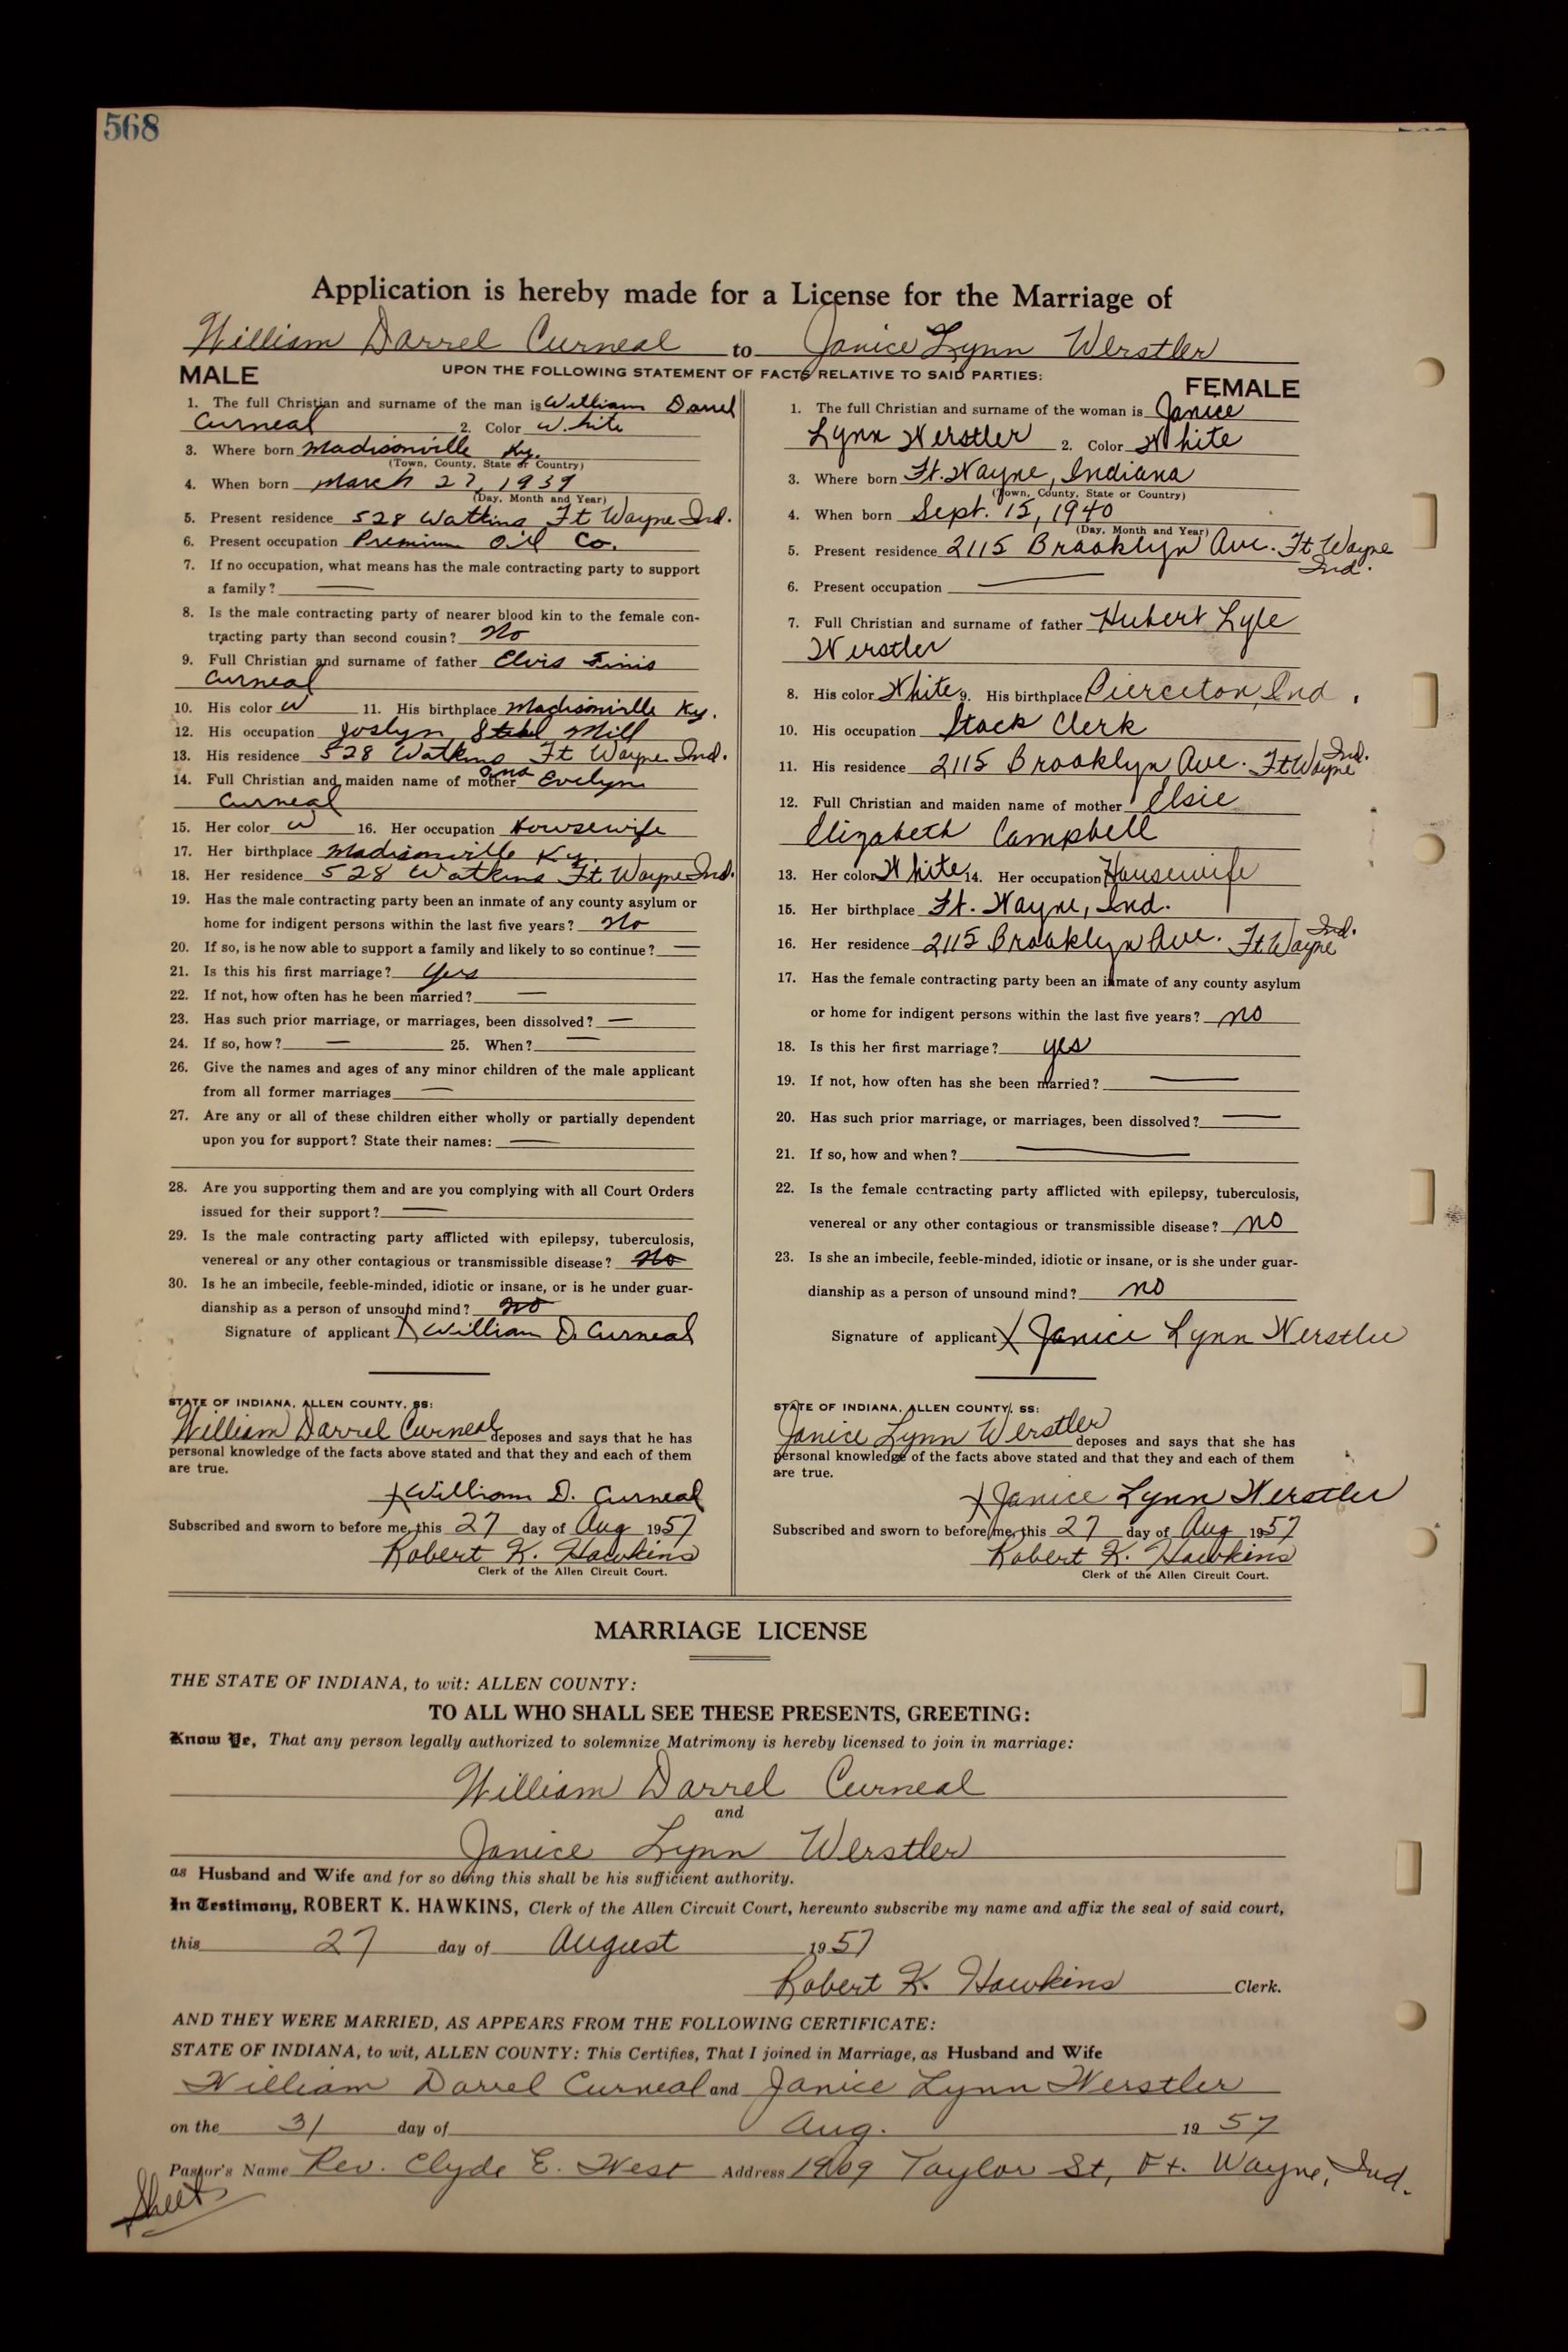 568
Application is hereby made for a License for the Marriage of
William Darrel Curneal to Janice Lynn Werstler
UPON THE FOLLOWING STATEMENT OF FACTS RELATIVE TO SAID PARTIES:
MALE
1. The full Christian and surname of the man is William Darrel
Curneal 2. Color White
3. Where born Madisonville Ky.
(Town, County, State or Country)
4. When born March 27, 1939
(Day, Month and Year)
5. Present residence 528 Watkins Ft Wayne Ind.
6. Present occupation Premium Oil Co.
7. If no occupation, what means has the male contracting party to support
a family? —
8. Is the male contracting party of nearer blood kin to the female con-
tracting party than second cousin? No
9. Full Christian and surname of father Elvis Finis
Curneal
10. His color W 11. His birthplace Madisonville Ky.
12. His occupation Joslyn Steel Mill
13. His residence 528 Watkins Ft Wayne Ind.
14. Full Christian and maiden name of mother Evelyn
Curneal
15. Her color W 16. Her occupation Housewife
17. Her birthplace Madisonville Ky.
18. Her residence 528 Watkins Ft Wayne Ind.
19. Has the male contracting party been an inmate of any county asylum or
home for indigent persons within the last five years? No
20. If so, is he now able to support a family and likely to so continue? —
21. Is this his first marriage? Yes
22. If not, how often has he been married? —
23. Has such prior marriage, or marriages, been dissolved? —
24. If so, how? — 25. When? —
26. Give the names and ages of any minor children of the male applicant
from all former marriages —
27. Are any or all of these children either wholly or partially dependent
upon you for support? State their names: —
28. Are you supporting them and are you complying with all Court Orders
issued for their support? —
29. Is the male contracting party afflicted with epilepsy, tuberculosis,
venereal or any other contagious or transmissible disease? No
30. Is he an imbecile, feeble-minded, idiotic or insane, or is he under guar-
dianship as a person of unsound mind? No
Signature of applicant X William D. Curneal
STATE OF INDIANA, ALLEN COUNTY, SS:
William Darrel Curneal deposes and says that he has
personal knowledge of the facts above stated and that they and each of them
are true.
X William D. Curneal
Subscribed and sworn to before me, this 27 day of Aug 1957
Robert K. Hawkins
Clerk of the Allen Circuit Court.
FEMALE
1. The full Christian and surname of the woman is Janice
Lynn Werstler 2. Color White
3. Where born Ft. Wayne, Indiana
(Town, County, State or Country)
4. When born Sept. 15, 1940
(Day, Month and Year)
5. Present residence 2115 Brooklyn Ave. Ft Wayne
Ind.
6. Present occupation —
7. Full Christian and surname of father Hubert Lyle
Werstler
8. His color White 9. His birthplace Pierceton, Ind.
10. His occupation Stock Clerk
11. His residence 2115 Brooklyn Ave. Ft Wayne Ind.
12. Full Christian and maiden name of mother Elsie
Elizabeth Campbell
13. Her color White 14. Her occupation Housewife
15. Her birthplace Ft. Wayne, Ind.
16. Her residence 2115 Brooklyn Ave. Ft Wayne Ind.
17. Has the female contracting party been an inmate of any county asylum
or home for indigent persons within the last five years? no
18. Is this her first marriage? yes
19. If not, how often has she been married? —
20. Has such prior marriage, or marriages, been dissolved? —
21. If so, how and when? —
22. Is the female contracting party afflicted with epilepsy, tuberculosis,
venereal or any other contagious or transmissible disease? no
23. Is she an imbecile, feeble-minded, idiotic or insane, or is she under guar-
dianship as a person of unsound mind? no
Signature of applicant X Janice Lynn Werstler
STATE OF INDIANA, ALLEN COUNTY, SS:
Janice Lynn Werstler deposes and says that she has
personal knowledge of the facts above stated and that they and each of them
are true.
X Janice Lynn Werstler
Subscribed and sworn to before me, this 27 day of Aug 1957
Robert K. Hawkins
Clerk of the Allen Circuit Court.
MARRIAGE LICENSE
THE STATE OF INDIANA, to wit: ALLEN COUNTY:
TO ALL WHO SHALL SEE THESE PRESENTS, GREETING:
Know Ye, That any person legally authorized to solemnize Matrimony is hereby licensed to join in marriage:
William Darrel Curneal
and
Janice Lynn Werstler
as Husband and Wife and for so doing this shall be his sufficient authority.
In Testimony, ROBERT K. HAWKINS, Clerk of the Allen Circuit Court, hereunto subscribe my name and affix the seal of said court,
this 27 day of August 1957
Robert K. Hawkins Clerk.
AND THEY WERE MARRIED, AS APPEARS FROM THE FOLLOWING CERTIFICATE:
STATE OF INDIANA, to wit, ALLEN COUNTY: This Certifies, That I joined in Marriage, as Husband and Wife
William Darrel Curneal and Janice Lynn Werstler
on the 31 day of Aug. 1957
Pastor's Name Rev. Clyde E. West Address 1909 Taylor St, Ft. Wayne, Ind.